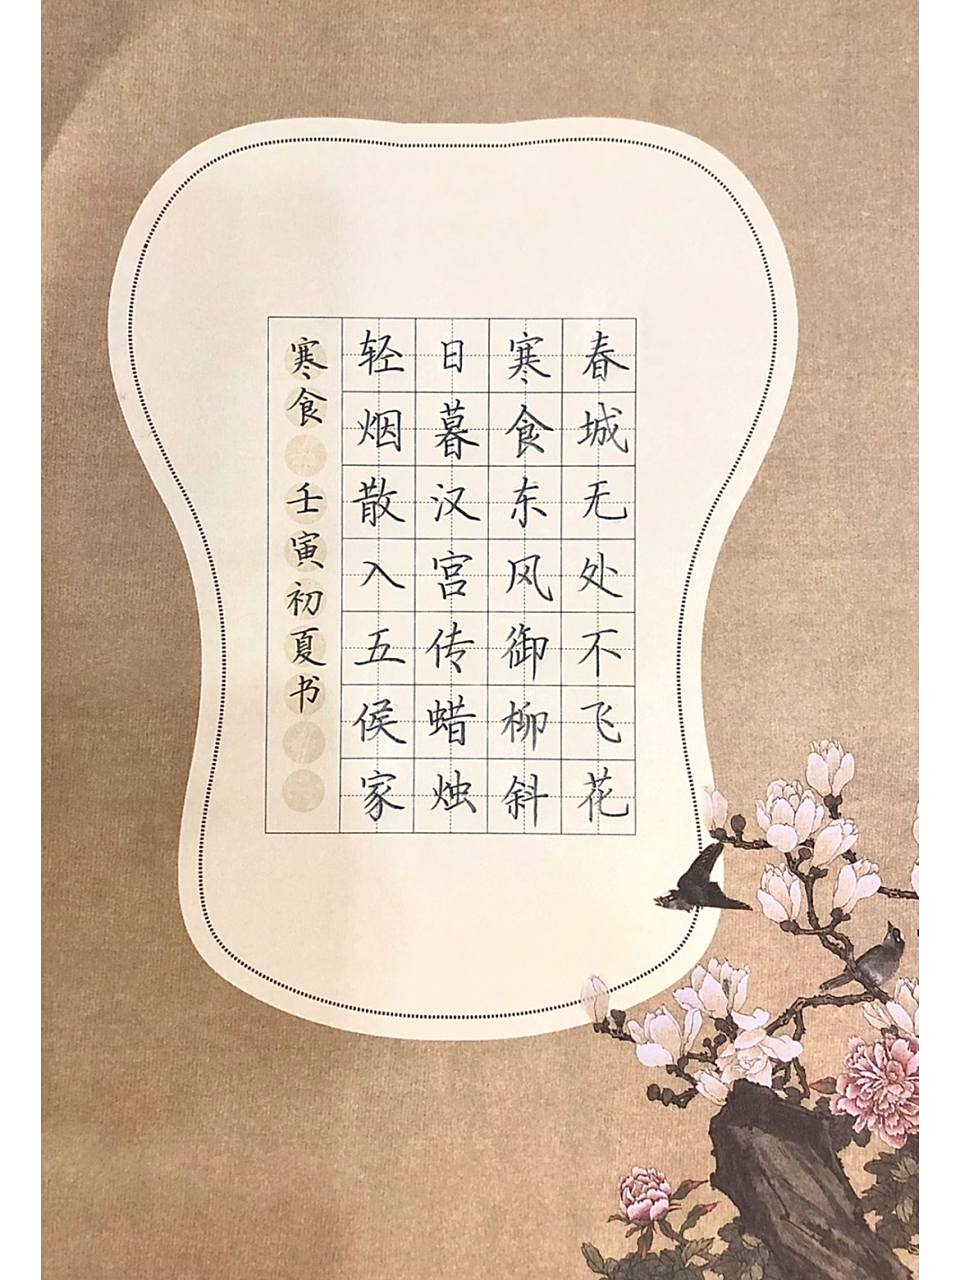 春城无处不飞花
寒食东风御柳斜
日暮汉宫传蜡烛
轻烟散入五侯家
寒食 壬寅初夏书